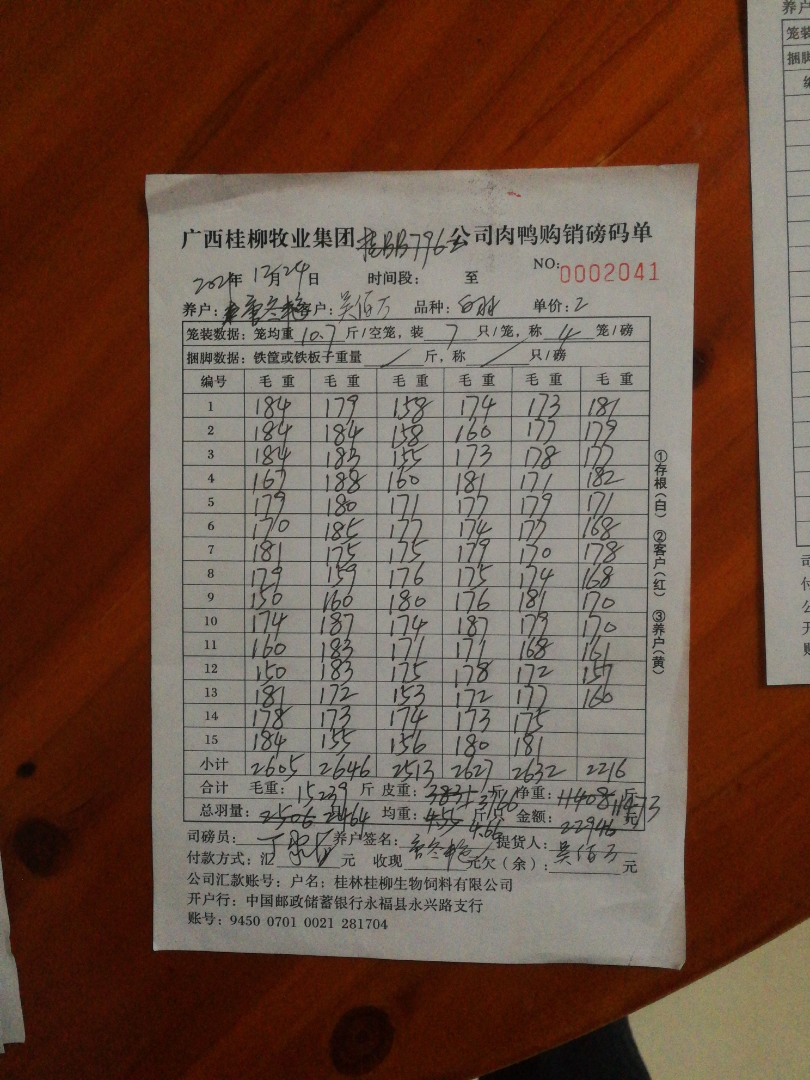 广西桂柳牧业集团桂BB796公司肉鸭购销磅码单
2024年12月24日 时间段: 至 NO:0002041
养户: 客户:吴佰万 品种:白羽 单价:2
笼装数据:笼均重10.7斤/空笼,装7只/笼,称4笼/磅
捆脚数据:铁筐或铁板子重量/斤,称/只/磅
编号 毛重 毛重 毛重 毛重 毛重 毛重
1 184 179 158 174 173 181
2 184 184 158 160 177 179
3 184 183 155 173 178 177
4 167 188 160 181 171 182
5 179 180 171 177 179 171
6 170 185 177 174 177 168
7 181 175 175 179 170 178
8 179 159 176 175 174 168
9 150 160 180 176 181 170
10 174 187 174 187 179 170
11 160 183 171 171 168 161
12 150 183 175 178 172 157
13 181 172 153 172 177 160
14 178 173 174 173 175
15 184 155 156 180 181
小计 2605 2646 2513 2627 2632 2216
合计 毛重:15239斤 皮重:3831 3766斤 净重:11408 11473斤
总羽量:2506 2464只 均重:4.55 4.66斤/只 金额:22946元
司磅员: 养户签名: 提货人:吴佰万
付款方式:汇 元 收现 元欠(余): 元
公司汇款账号:户名:桂林桂柳生物饲料有限公司
开户行:中国邮政储蓄银行永福县永兴路支行
账号:9450 0701 0021 281704
①存根(白) ②客户(红) ③养户(黄)
养户
笼装
捆脚
编